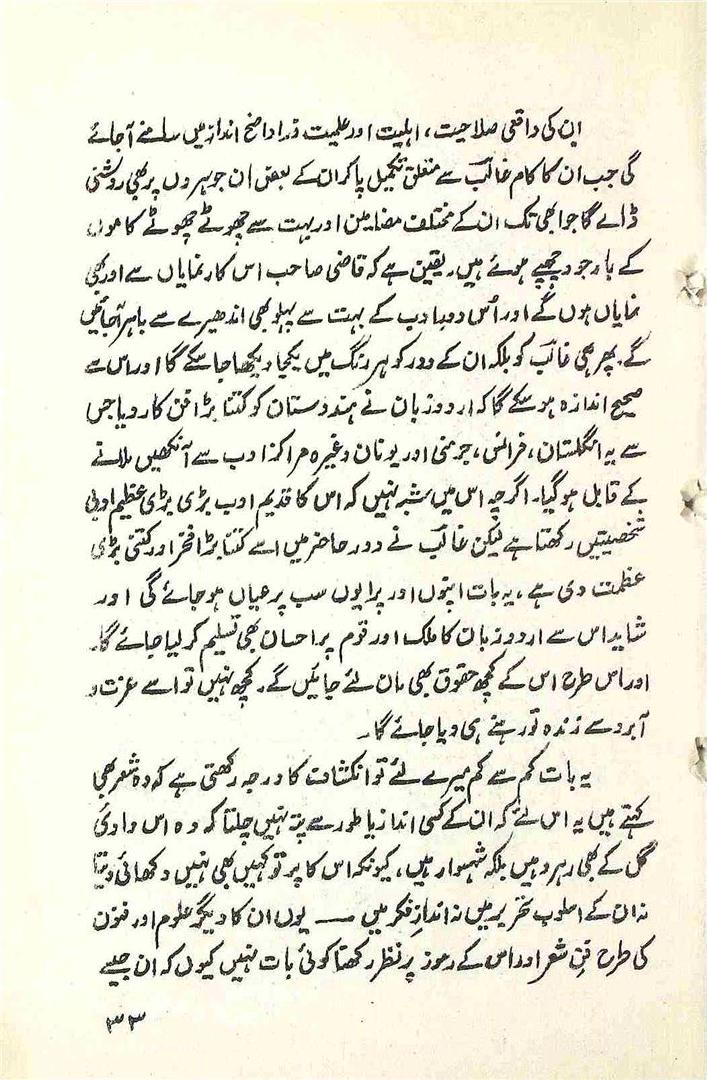 ان کی واقعی صلاحیت، اہلیت اور علمیت ذرا واضح انداز میں سامنے آجائے
گی جب ان کا کام غالبؔ سے متعلق تکمیل پاکر ان کے بعض ان جوہروں پر بھی روشنی
ڈالے گا جو ابھی تک ان کے مختلف مضامین اور بہت سے چھوٹے چھوٹے کاموں
کے باوجود چھپے ہوئے ہیں۔ یقین ہے کہ قاضی صاحب اس کارنمایاں سے اور بھی
نمایاں ہوں گے اور اُس دور ادب کے بہت سے پہلو بھی اندھیرے سے باہر آجائیں
گے۔ پھر ہی غالبؔ کو بلکہ ان کے دور کو ہر رنگ میں یکجا دیکھا جا سکے گا اور اس سے
صحیح اندازہ ہو سکے گا کہ اردو زبان نے ہندوستان کو کتنا بڑا فن کار دیا جس
سے یہ انگلستان، فرانس، جرمنی اور یونان وغیرہ مراکز ادب سے آنکھیں ملانے
کے قابل ہو گیا۔ اگرچہ اس میں شبہ نہیں کہ اس کا قدیم ادب بڑی بڑی عظیم ادبی
شخصیتیں رکھتا ہے لیکن غالبؔ نے دور حاضر میں اسے کتنا بڑا فخر اور کتنی بڑی
عظمت دی ہے، یہ بات اپنوں اور پرایوں سب پر عیاں ہو جائے گی اور
شاید اس سے اردو زبان کا ملک اور قوم پر احسان بھی تسلیم کر لیا جائے گا۔
اور اس طرح اس کے کچھ حقوق بھی مان لئے جائیں گے۔ کچھ نہیں تو اسے عزت و
آبرو سے زندہ تو رہنے ہی دیا جائے گا۔
یہ بات کم سے کم میرے لئے تو انکشاف کا درجہ رکھتی ہے کہ وہ شعر بھی
کہتے ہیں یہ اس لئے کہ ان کے کسی انداز یا طور سے پتہ نہیں چلتا کہ وہ اس وادیٔ
گل کے بھی رہرو ہیں بلکہ شہسوار ہیں، کیونکہ اس کا پر تو کہیں بھی نہیں دکھائی دیتا
نہ ان کے اسلوب تحریر میں نہ اندازِ فکر میں — یوں ان کا دیگر علوم اور فنون
کی طرح فنِ شعر اور اس کے رموز پر نظر رکھنا کوئی بات نہیں کیوں کہ ان جیسے
۳۳